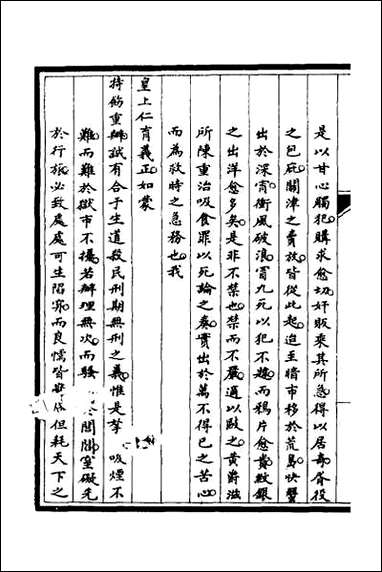 是以甘心觸犯購求愈切奸販乘其所急得以居奇胥役
之包庇關津之賣放皆從此起迨至暗市移於荒島快蟹
出於深宵衝風破浪冒九死以犯不韙而鴉片愈貴紋銀
之出洋愈多矣是非不禁也禁而不嚴適以敺之黃爵滋
所陳重治吸食罪以死論之奏實出於萬不得已之苦心
而為救時之急務也我
皇上仁育義正如蒙
持飭重辦試有合于生道殺民刑期無刑之義惟是拏吸煙不
難而難於獄市不擾若辦理無次而騷閭閻室礙先
於行旅必致處處可生陷穽而良懦皆無成但耗天下之